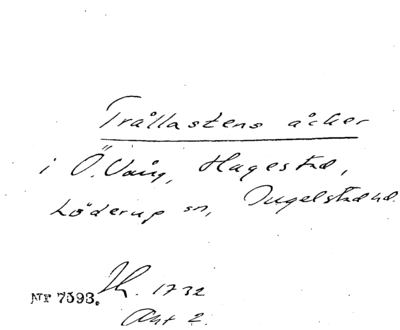 Trållastens åcker
i Ö. Vång, Hagestad,
Löderup sn, Ingelstad hd.
Nr 7593. Th. 1732
Akt 2.